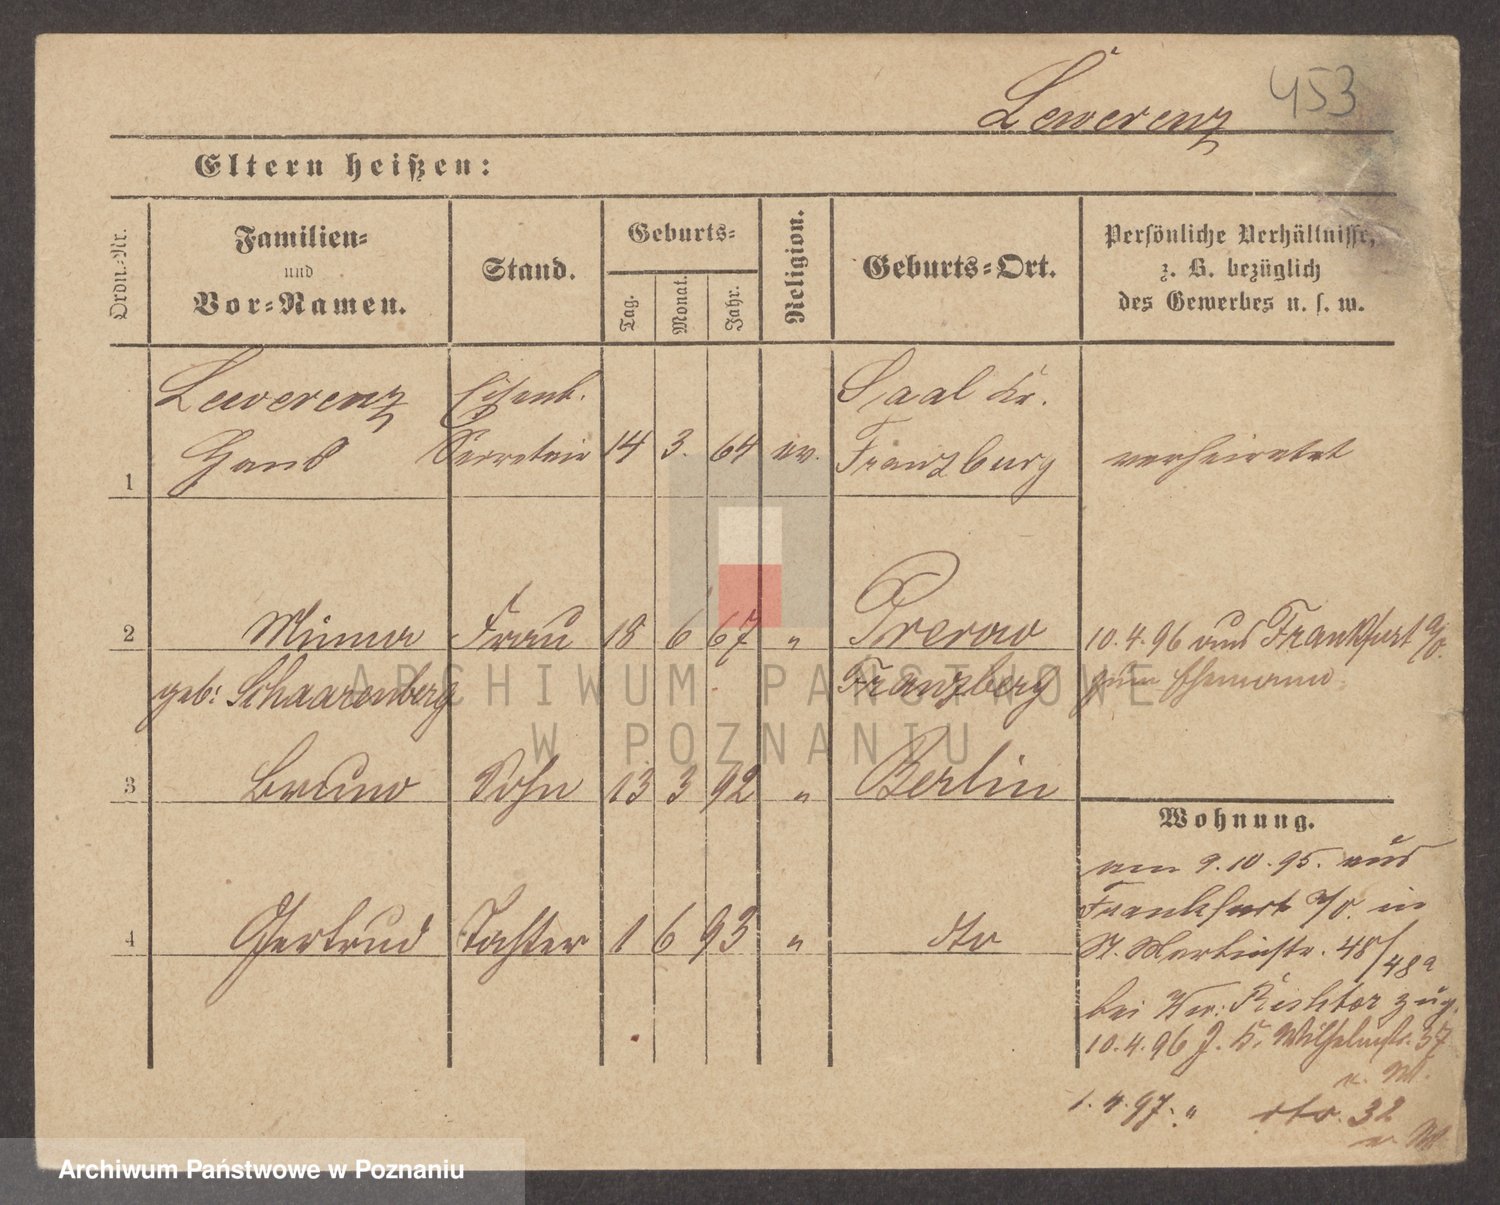 Lewerenz 453
Eltern heißen:
Ordn.-Nr.
Familien-
und
Vor-Namen.
Stand.
Geburts-
Tag.
Monat.
Jahr.
Religion.
Geburts-Ort.
Persönliche Verhältnisse,
z. B. bezüglich
des Gewerbes u. s. w.
Lewerenz Eisenb. Saal Kr.
1 Hans Secretair 14 3. 64 ev. Franzburg verheiratet
2 Minna Frau 18 6 67 " Prerow 10.4.96 aus Frankfurt a/O.
geb: Schaarenberg Franzberg zum Ehemann
3 Bruno Sohn 13 3 92 " Berlin
Wohnung.
am 9.10.95. aus
Frankfurt a/O. in
4 Gertrud Tochter 1 6 93 " dto St. Martinstr. 48/48a
bei Richter zug.
10.4.96 J. K. Wilhelmstr. 37
1.4.97. " dto. 32
ARCHIWUM PAŃSTWOWE
W POZNANIU
Archiwum Państwowe w Poznaniu